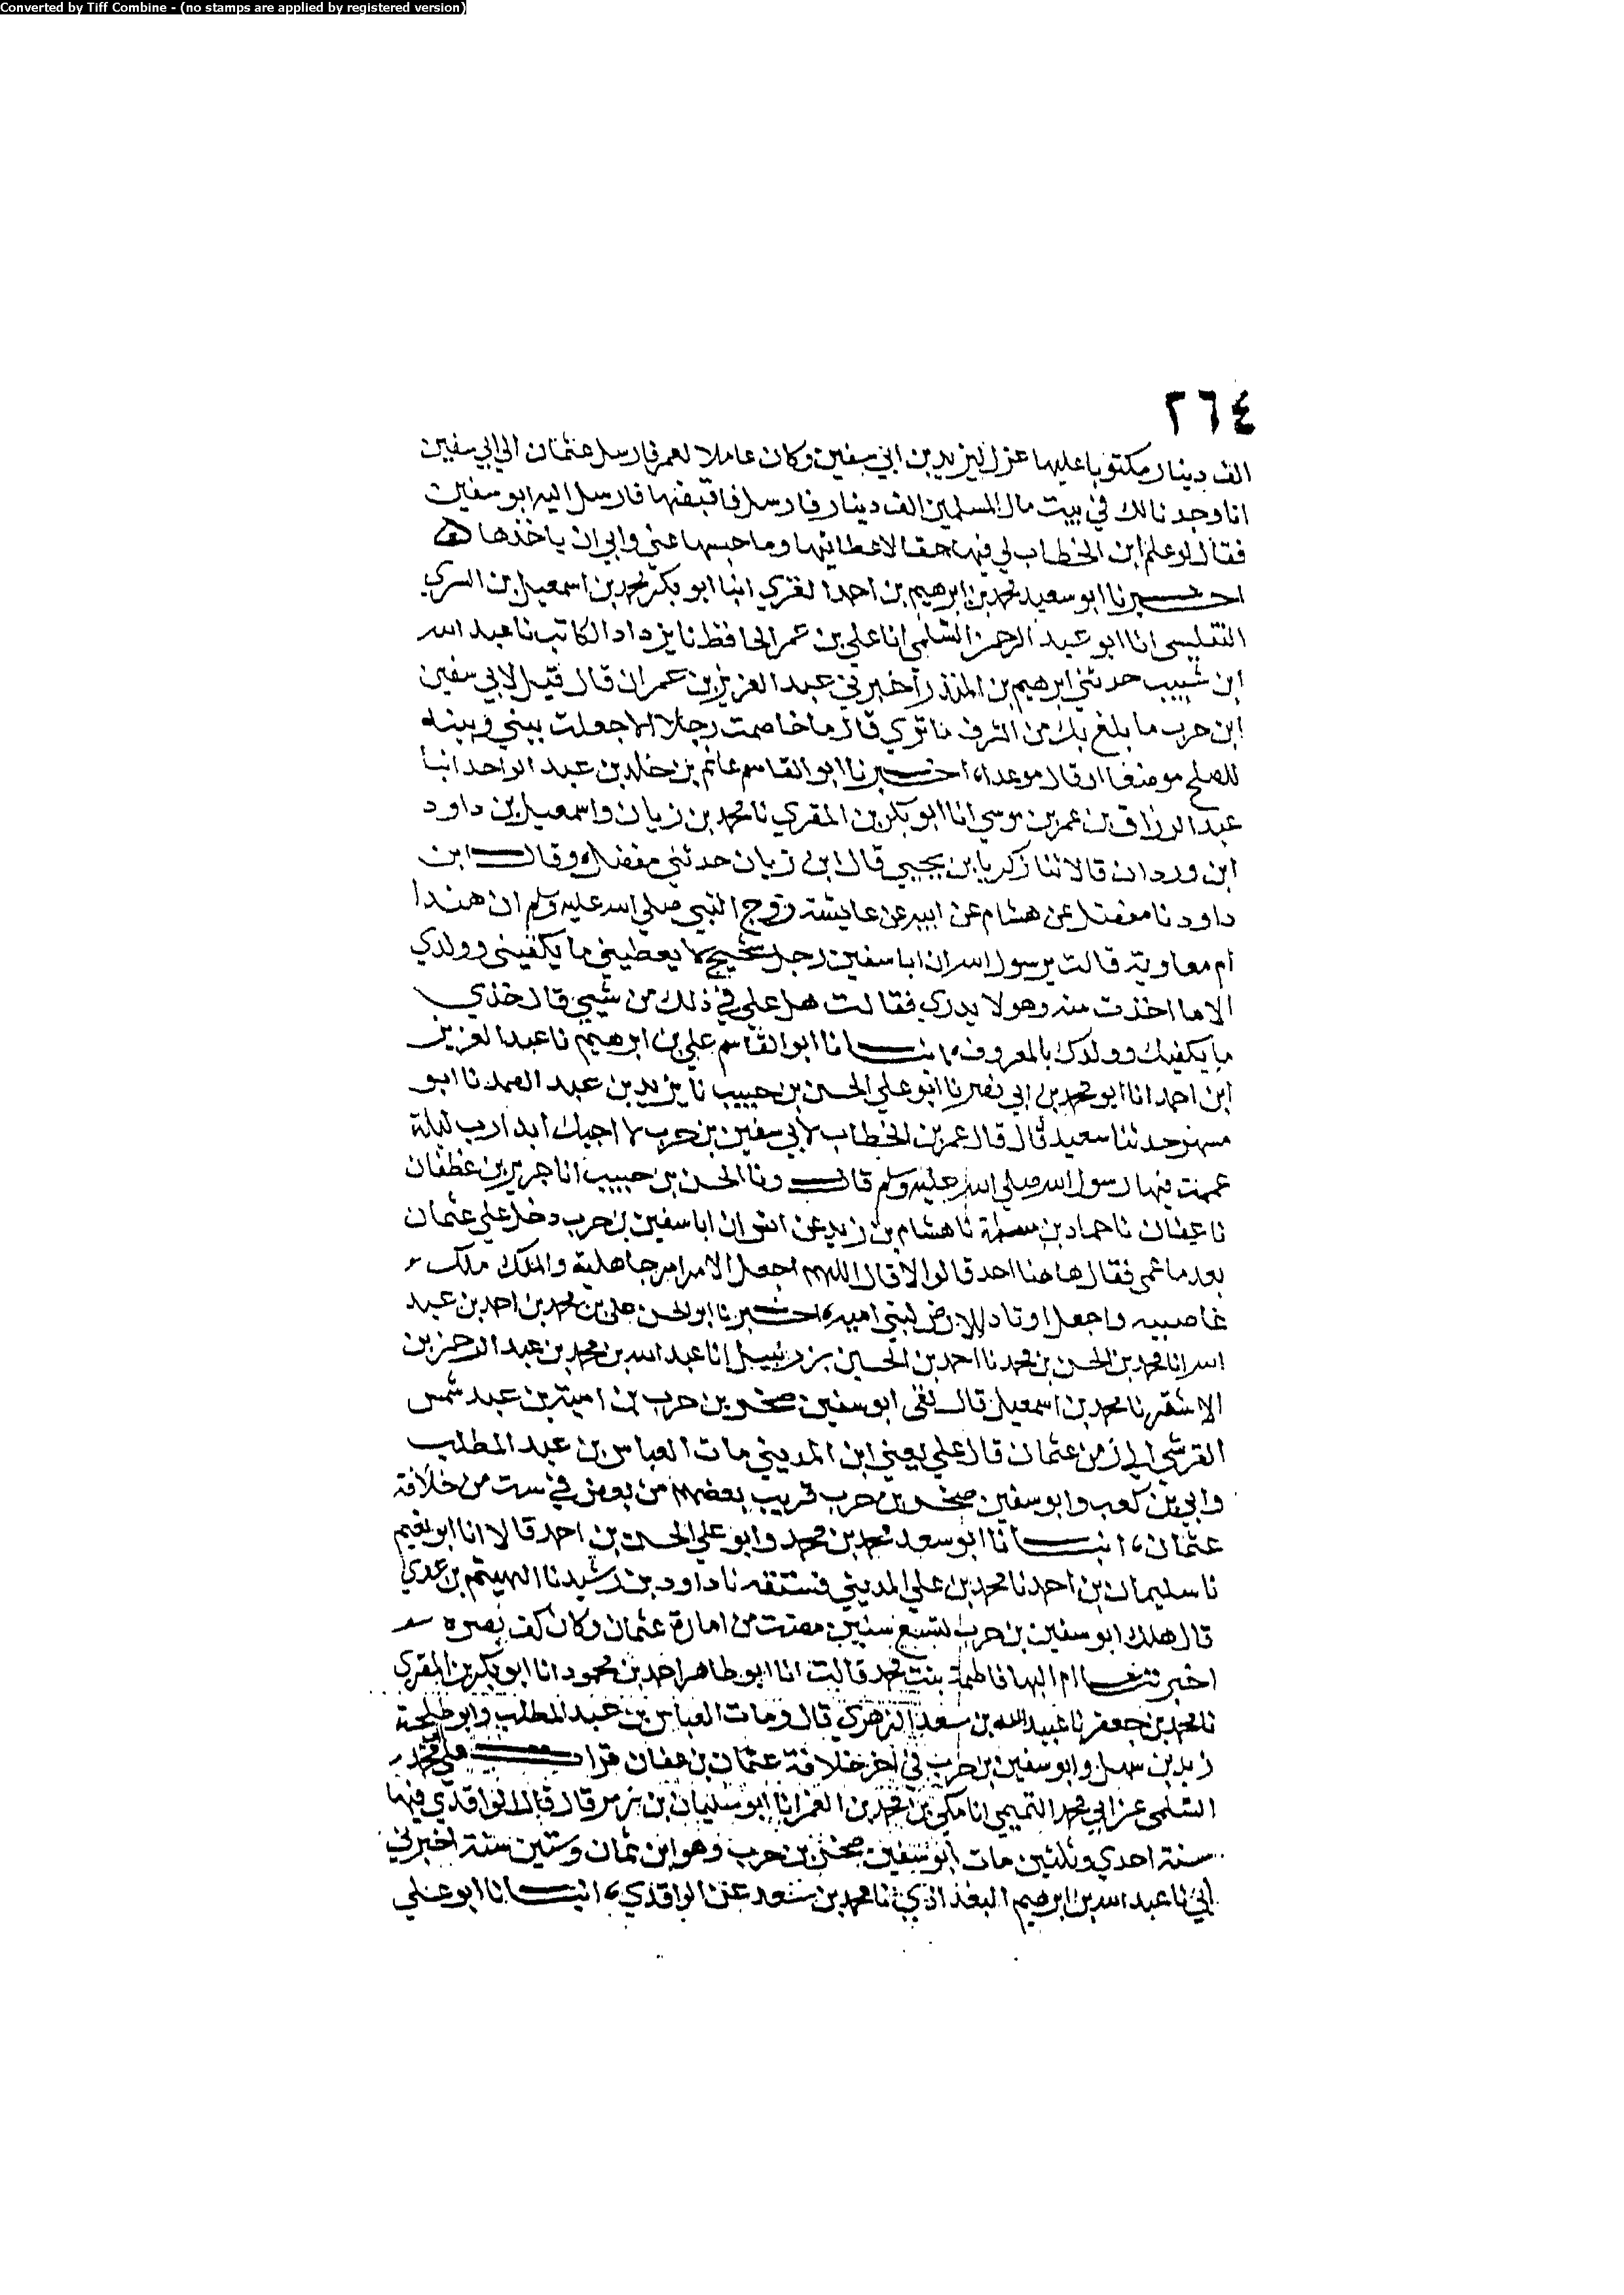 Converted by Tiff Combine - (no stamps are applied by registered version)
٢٦٤
الف دينار مكتوبا عليها عزل ليزيد بن ابي سفين وكان عاملا لعمر فارسل عثمان الي ابي سفين
انا وجدنا لك في بيت مال المسلمين الف دينار فارسل فاقبضها فارسل اليه ابو سفين
فقال لو علم ابن الخطاب لي فيها حقا لاعطانيها وما حبسها عني وابي ان ياخذها ه
اخبرنا ابو سعيد محمد بن ابرهيم بن احمد الغزي انبا ابو بكر محمد بن اسمعيل بن السري
التفليسي انا ابو عبد الرحمن السلمي انا علي بن عمر الحافظ نا يزداد الكاتب نا عبد الله
ابن شبيب حدثني ابرهيم بن المنذر اخبرني عبد العزيز بن عمران قال قيل لابي سفين
ابن حرب ما بلغ بك من الشرف ما تري قال ما خاصمت رجلا الا جعلت بيني وبينه
للصلح موضعا او قال موعدا، اخبرنا ابو القاسم غانم بن خلد بن عبد الواحد انبا
عبد الرزاق بن عمر بن موسي انا ابو بكر بن المقري نا محمد بن زيان واسمعيل بن داود
ابن وردان قالا ثنا زكريا بن يحيي قال ابن زيان حدثني مفضل ه وقال ابن
داود نا مفضل عن هشام عن ابيه عن عايشة زوج النبي صلي الله عليه وسلم ان هندا
ام معاوية قالت يرسول الله ان ابا سفين رجل شحيح لا يعطيني ما يكفيني وولدي
الا ما اخذت منه وهو لا يدري فقالت هل علي في ذلك من شيي قال خذي
ما يكفيك وولدك بالمعروف، انبانا ابو القاسم علي بن ابرهيم نا عبد العزيز
ابن احمد انا ابو محمد بن ابي نصر نا ابو علي الحسن بن حبيب نا يزيد بن عبد الصمد نا ابو
مسهر حدثنا سعيد قال قال عمر بن الخطاب لابي سفين بن حرب لا احبك ابدا رب ليلة
غممت فيها رسول الله صلي الله عليه وسلم قال ونا الحسن بن حبيب انا جرير بن غطفان
نا عفان نا حماد بن سلمة نا هشام بن زيد عن انس ان ابا سفين بن حرب دخل علي عثمان
بعد ما عمي فقال هاهنا احد قالوا لا قال اللهم اجعل الامر امر جاهلية والملك ملك
غاصبيه واجعل اوتاد الارض لبني اميه، اخبرنا ابو الحسن علي بن محمد بن احمد بن عبد
الله انا محمد بن الحسن بن محمد نا احمد بن الحسين بن زنبيل انا عبد الله بن محمد بن عبد الرحمن بن
الاشقر نا محمد بن اسمعيل قال بقي ابو سفين صخر بن حرب بن امية بن عبد شمس
القرشي الي زمن عثمان قال علي يعني ابن المديني مات العباس بن عبد المطلب
وابي بن كعب وابو سفين صخر بن حرب قريب بعضهم من بعض في ست من خلافة
عثمان، انبانا ابو سعد محمد بن محمد وابو علي الحسن بن احمد قالا انا ابو نعيم
نا سليمان بن احمد نا محمد بن علي المديني فستقه نا داود بن رشيد نا الهيثم بن عدي
قال هلك ابو سفين بن حرب لتسع سنين مضت من امارة عثمان وكان كف بصره
اخبرتنا ام البها فاطمة بنت محمد قالت انا ابو طاهر احمد بن محمود انا ابو بكر بن المقري
نا محمد بن جعفر نا عبيد الله بن سعد الزهري قال ومات العباس بن عبد المطلب وابو طلحة
زيد بن سهل وابو سفين بن حرب في اخر خلافة عثمان بن عفان قرات علي ابي محمد
السلمي عن ابي محمد التميمي انا مكي بن محمد بن الغمر انا ابو سليمان بن زبر قال قال الواقدي فيها
سنة احدي وثلثين مات ابو سفين صخر بن حرب وهو ابن ثمان وستين سنة اخبرني
ابي نا عبد الله بن ابرهيم البغداذي نا محمد بن سعد عن الواقدي، انبانا ابو علي